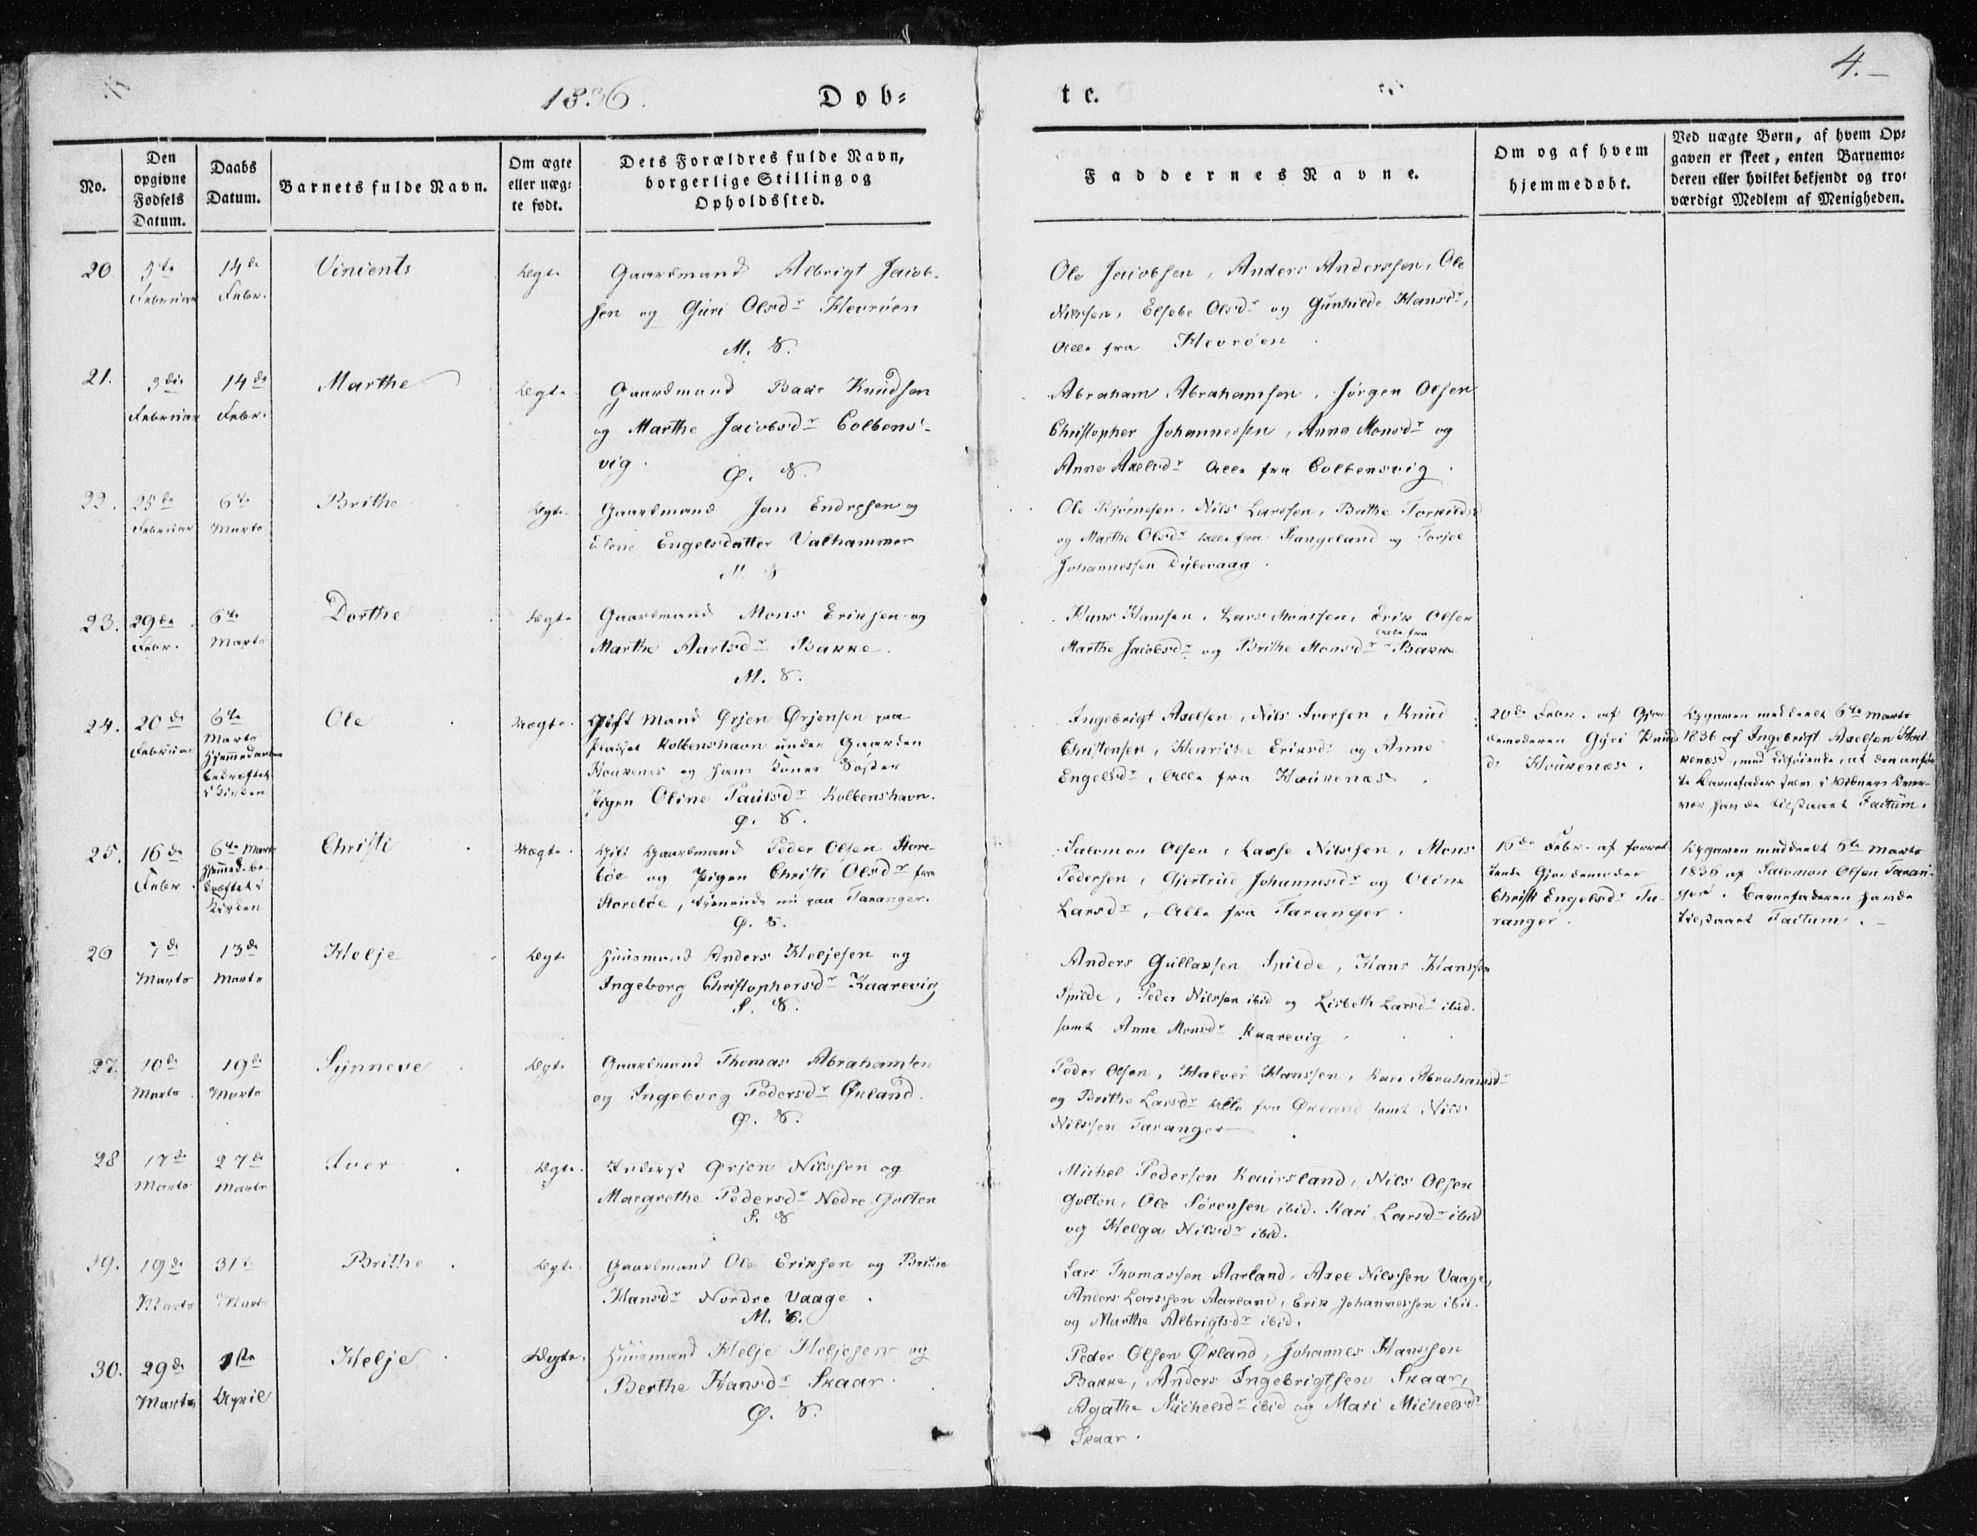 4.
1836.
Døb=
te.
No.
Den opgivne Fødsels Datum.
Daabs Datum.
Barnets fulde Navn.
Om ægte eller uæg= te født.
Dets Forældres fulde Navn, borgerlige Stilling og Opholdssted.
Faddernes Navne.
Om og af hvem hjemmedøbt.
Ved uægte Børn, af hvem Op= gaven er skeet, enten Barnemo= deren eller hvilket bekjendt og tro= værdigt Medlem af Menigheden.
20. 5te Februar 14de Febr. Vincents Ægte
Gaardmand Albrigt Jacob-
sen og Guri Olsdr Hevrøen
M. S.
Ole Jacobsen, Anders Anderssen, Ole
Nilssen, Elsebe Olsdr og Gunhilde Hansdr,
Alle fra Hevrøen
21. 3die Februar 14de Febr. Marthe Ægte.
Gaardmand Baar Knudsen
og Marthe Jacobsdr Colbens-
vig.
Ø. S.
Abraham Abrahamsen, Jørgen Olsen
Christopher Johannessen, Anna Monsdr og
Anna Axelsdr Alle fra Colbensvig.
22. 25de Februar 6te Marts Brithe Ægte.
Gaardmand Jan Endresen og
Elene Engelsdatter Valhammer
M. S
Ole Bjørnesen, Nils Larssen, Brithe Torkildsd
og Marthe Olsdr Alle fra Hangeland og Torjel
Johannessen Dybevaag.
23. 29de Febr. 6te Marts Dorthe Ægte
Gaardmand Mons Eriksen og
Marthe Aarlsdr Bakke.
M. S.
Hans Hanssen, Lars Monssen, Erik Olsen
Marthe Jacobsdr og Brithe Monsdr Alle fra Bakke
24. 20de Februar 6te Marts Hjemmedaaben bekræftet i Kirken Ole Uægte.
Gift Mand Ørjen Ørjensen paa
Pladset Kolbenshavn under Gaarden
Houkenæs og hans Kones Søster
Pigen Oline Paulsdr Kolbenshavn.
Ø. S.
Ingebrigt Axelsen, Nils Iversen, Knud
Christensen, Henrikke Eriksdr og Anne
Engelsdr, Alle fra Houkenæs.
20de Febr. af Gjor
demoderen Gyri Knuds
dr Houkenæs.
Opgaven meddeelt 6te Marts
1836 af Ingebrigt Axelsen Hou-
kenæs, med Tilføiende, at den anfør
te Barnefader
havde tilstaaet Factum.
25. 16de Febr. 6te Marts Hjemmed. be- kræftet i Kirken Christi Uægte.
Gift Gaardmand Peder Olsen Store-
bøe og Pigen Christi Olsdr fra
Storebøe, tjenende nu paa Taranger.
Ø. S.
Salomon Olsen, Lasse Nilssen, Mons
Pedersen, Gjertrud Johannesdr og Oline
Larsdr, Alle fra Taranger.
16de Febr. af
Gjordemoder
Christi Engelsdr Ta-
ranger.
Opgaven meddeelt 6te Marts
1836 af Salomon Olsen Taran-
ger. Barnefaderen havde
tilstaaet Factum.
26 7de Marts 13de Marts Helje Ægte
Huusmand Anders Heljesen og
Ingeborg Christophersdr Kaarevig
S. S.
Anders Gullaksen Spilde, Hans Hanssen
Spilde, Peder Nilssen ibid og Lisbeth Larsdr ibid.
samt Anne Monsdr Kaarevig
27. 10de Marts 19de Marts Synneve Ægte
Gaardmand Thomas Abrahamsen
og Ingeborg Pedersdr Økland.
Ø. S.
Peder Olsen, Halver Hanssen, Kari Abrahamsdr
og Brithe Larsdr Alle fra Økland samt Nils
Nilssen Taranger
28 17de Marts 27de Marts Iver Ægte.
Inderst Ørjen Nilssen og
Margrethe Pedersdr Nedre Golten
S. S
Michel Pedersen Kaursland, Nils Olsen
Golten, Ole Sørensen ibid. Kari Larsdr ibid
og Helga Nilsdr ibid.
29. 19de Marts 31te Marts Brithe Ægte.
Gaardmand Ole Eriksen og Brithe
Hansdr Nordre Vaage.
M. S.
Lars Thomassen Aarland, Axel Nilssen Vaage,
Anders Larssen Aarland, Erik Johannessen ibid.
og Marthe Albrigtsdr ibid.
30. 29de Marts 1ste April Helje Ægte.
Huusmand Helje Heljesen og
Berthe Hansdr Skaar.
Ø. S.
Peder Olsen Økland, Johannes Hanssen
Bakke, Anders Ingebrigtsen Skaar,
Agathe Michelsdr ibid og Mari Michelsdr
Skaar.